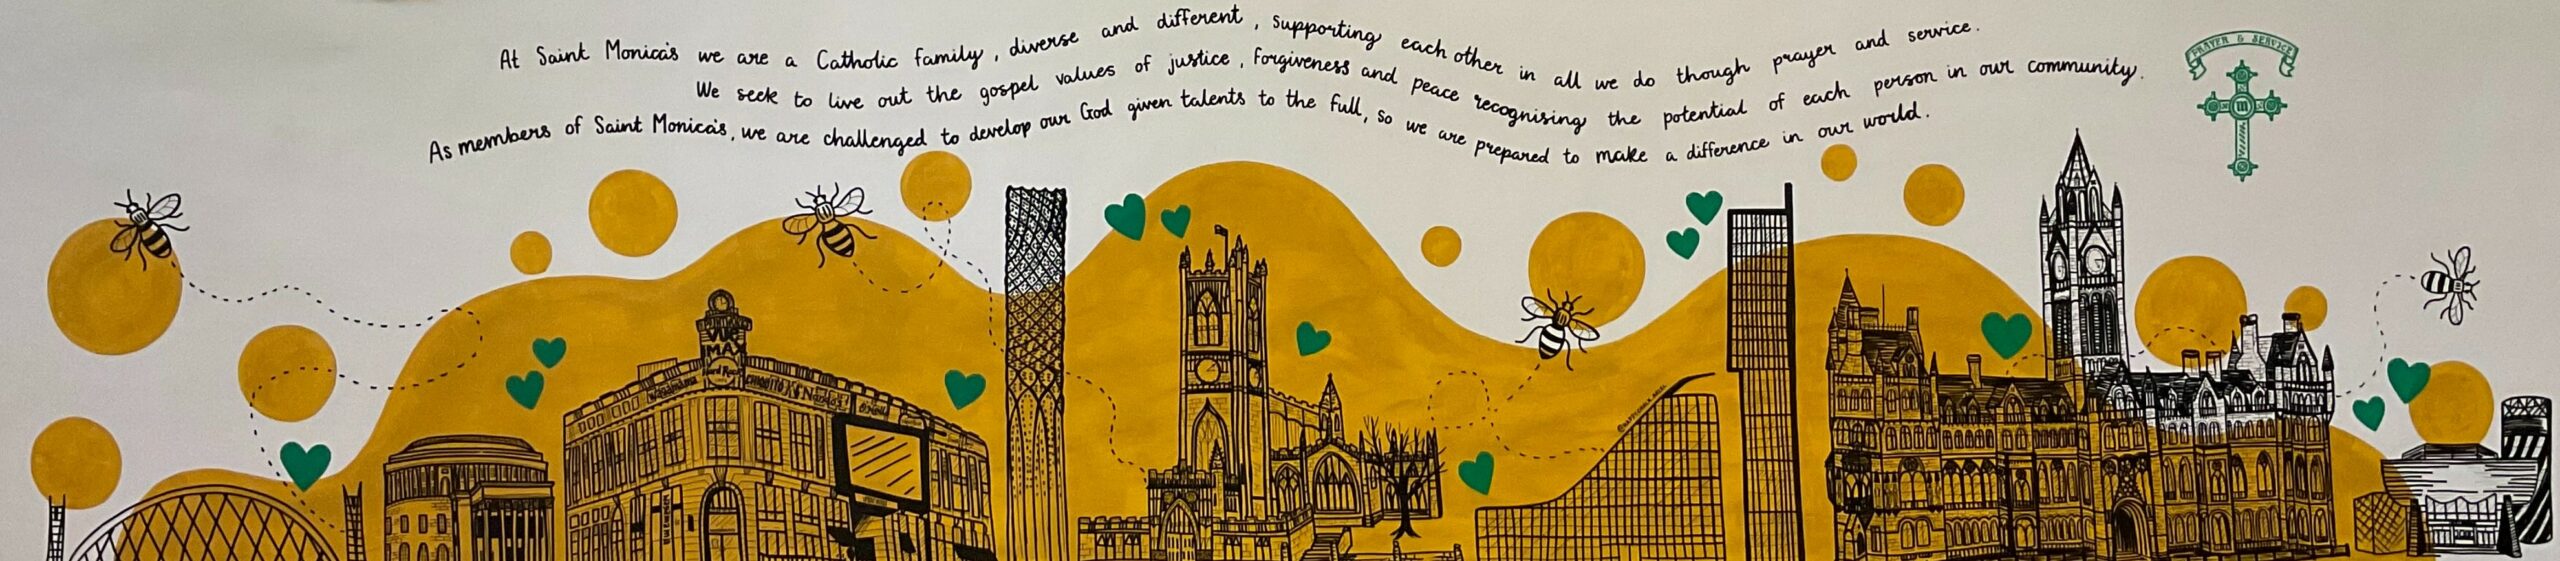 At Saint Monica's we are a Catholic family, diverse and different, supporting each other in all we do though prayer and service.
We seek to live out the gospel values of justice, forgiveness and peace recognising the potential of each person in our community.
As members of Saint Monica's, we are challenged to develop our God given talents to the full, so we are prepared to make a difference in our world.
PRAYER & SERVICE
M
MAX
Hard Rock
Wagamama
Nando's